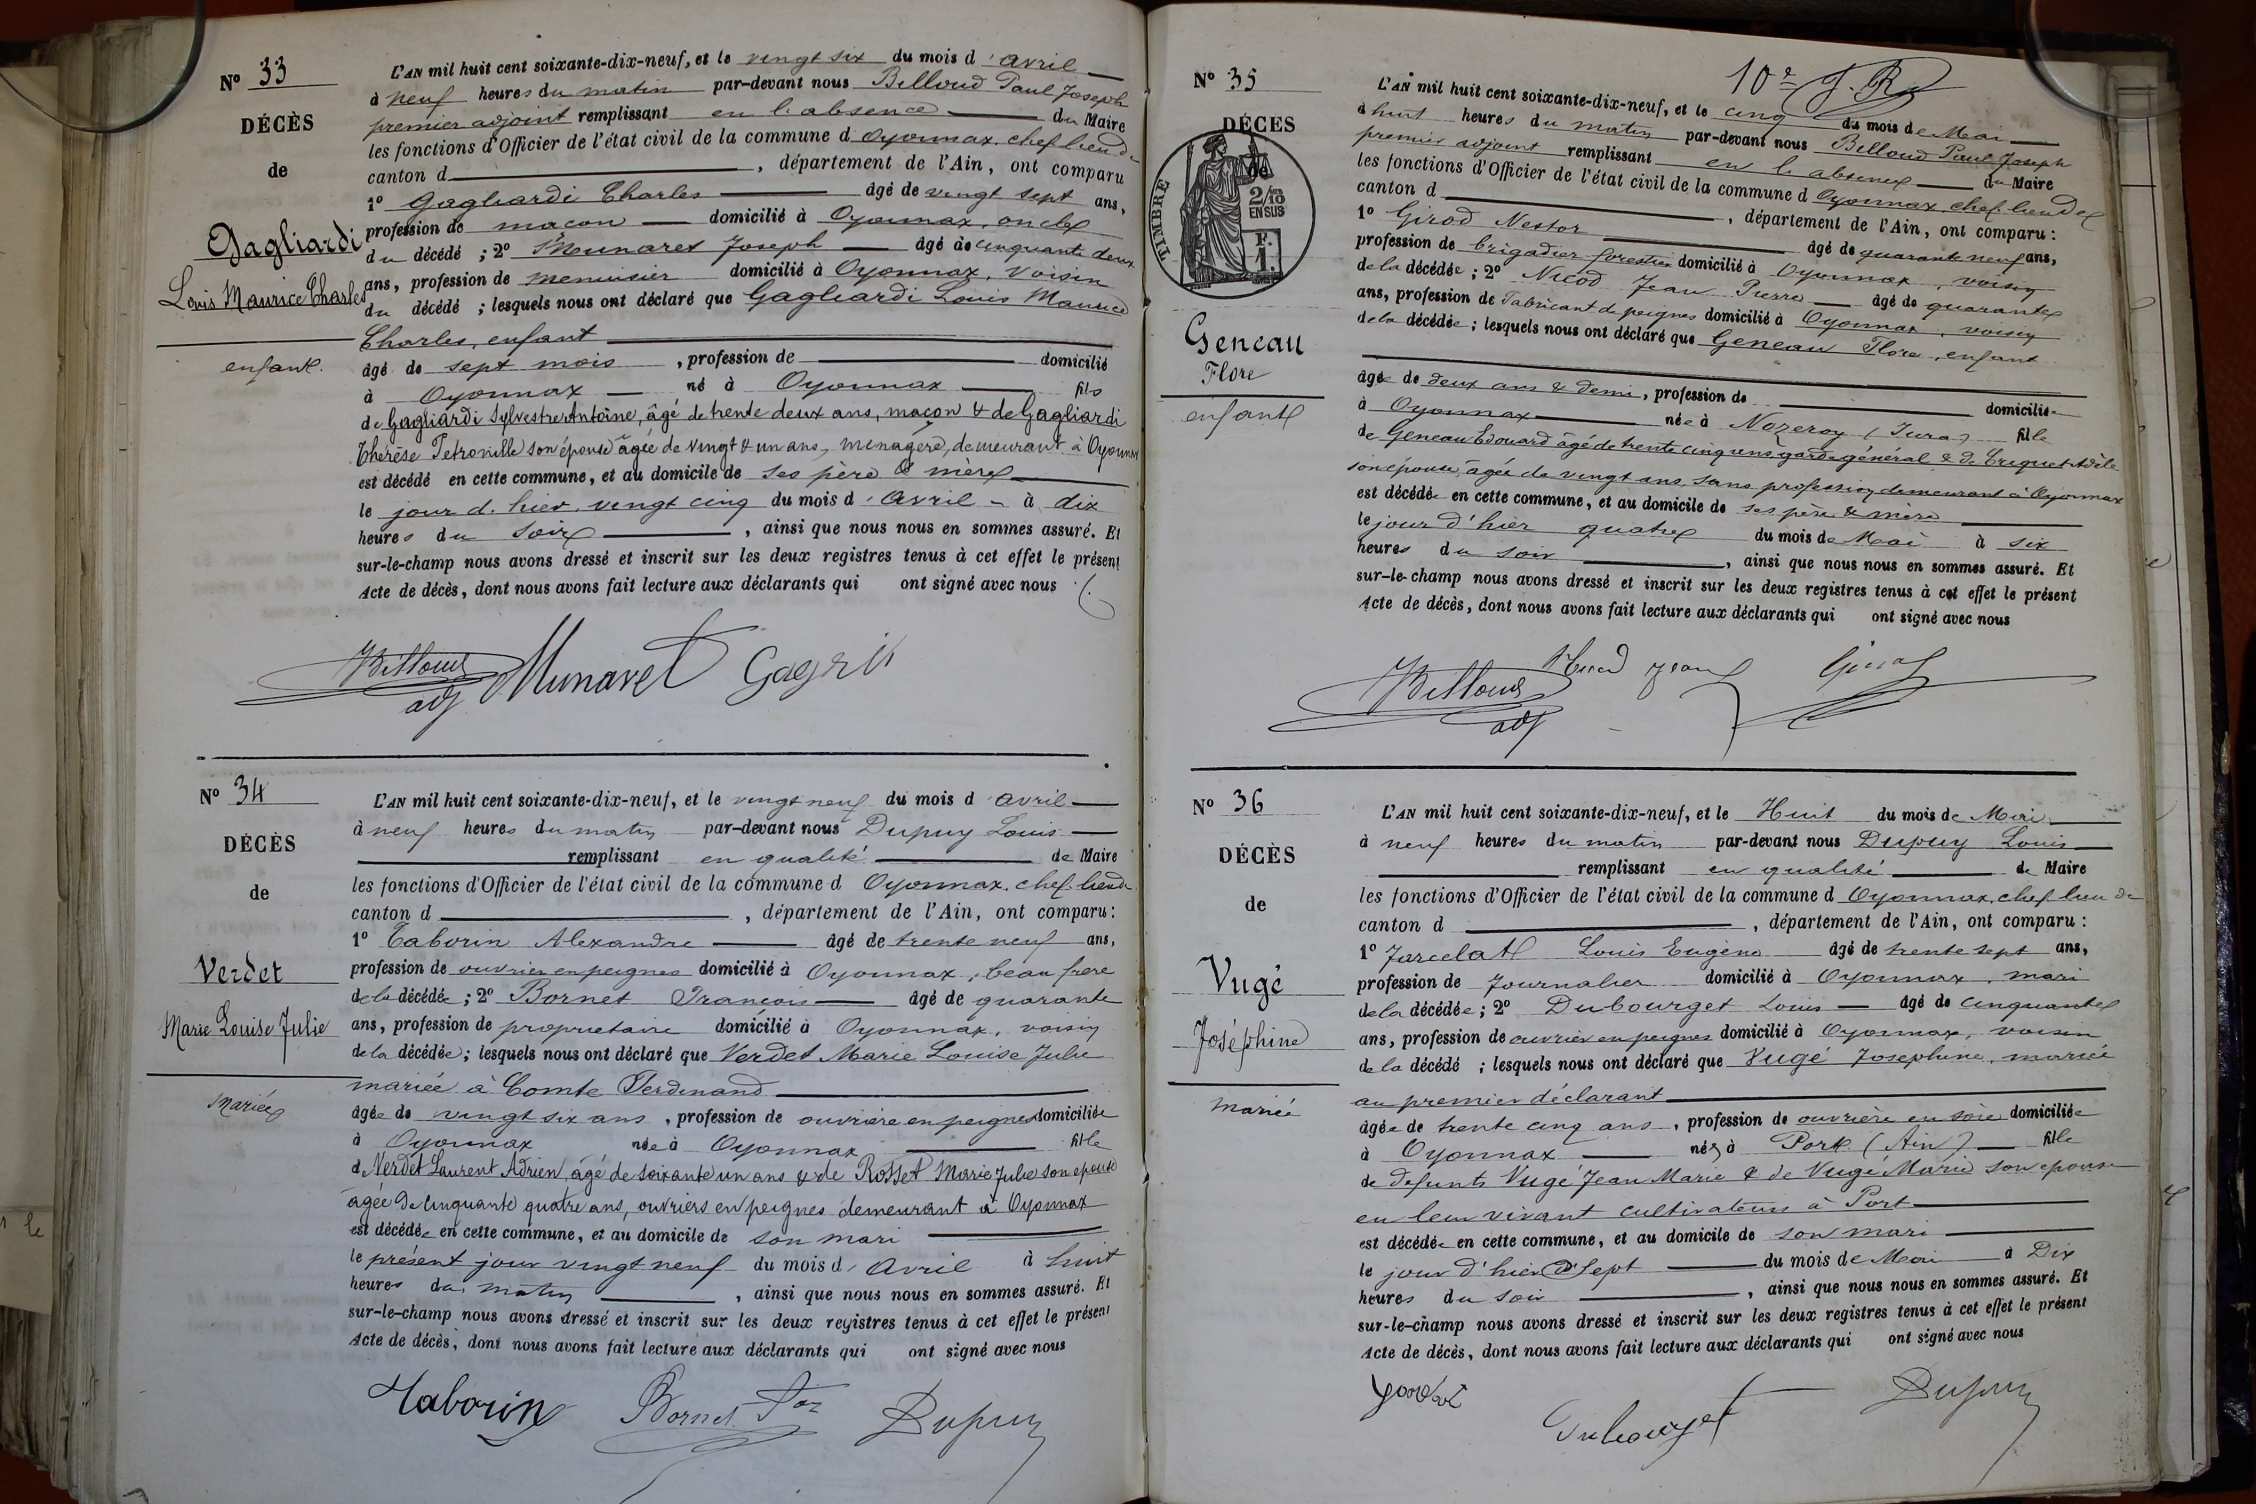 N° 33
DÉCÈS
de
Gagliardi
Louis Maurice Charles
enfant.
L'AN mil huit cent soixante-dix-neuf, et le vingt six du mois d'avril
à neuf heures du matin par-devant nous Billoud Paul Joseph
premier adjoint remplissant en l'absence du Maire
les fonctions d'Officier de l'état civil de la commune d Oyonnax, chef lieu de
canton d , département de l'Ain, ont comparu
1° Gagliardi Charles âgé de vingt sept ans,
profession de maçon domicilié à Oyonnax, oncle
du décédé ; 2° Munaret Joseph âgé de cinquante deux
ans, profession de menuisier domicilié à Oyonnax, voisin
du décédé ; lesquels nous ont déclaré que Gagliardi Louis Maurice
Charles, enfant
âgé de sept mois , profession de domicilié
à Oyonnax né à Oyonnax fils
de Gagliardi Sylvestre Antoine, âgé de trente deux ans, maçon & de Gagliardi
Thérèse Petronille son épouse âgée de vingt & un ans, ménagère, demeurant à Oyonnax
est décédé en cette commune, et au domicile de ses père & mère
le jour d'hier vingt cinq du mois d'avril à dix
heures du soir , ainsi que nous nous en sommes assuré. Et
sur-le-champ nous avons dressé et inscrit sur les deux registres tenus à cet effet le présent
Acte de décès, dont nous avons fait lecture aux déclarants qui ont signé avec nous
Billoud Munaret
adj
N° 34
DÉCÈS
de
Verdet
Marie Louise Julie
mariée
L'AN mil huit cent soixante-dix-neuf, et le vingt neuf du mois d'avril
à neuf heures du matin par-devant nous Dupuy Louis
remplissant en qualité de Maire
les fonctions d'Officier de l'état civil de la commune d Oyonnax, chef-lieu de
canton d , département de l'Ain, ont comparu :
1° Taborin Alexandre âgé de trente neuf ans,
profession de ouvrier en peignes domicilié à Oyonnax, beau frère
de la décédée ; 2° Bornet François âgé de quarante
ans, profession de propriétaire domicilié à Oyonnax, voisin
de la décédée ; lesquels nous ont déclaré que Verdet Marie Louise Julie
mariée à Comte Ferdinand
âgée de vingt six ans , profession de ouvrière en peignes domiciliée
à Oyonnax née à Oyonnax fille
de Verdet Laurent Adrien, âgé de soixante un ans & de Rosset Marie Julie son épouse
âgée de cinquante quatre ans, ouvriers en peignes demeurant à Oyonnax
est décédée en cette commune, et au domicile de son mari
le présent jour vingt neuf du mois d'avril à huit
heures du matin , ainsi que nous nous en sommes assuré. Et
sur-le-champ nous avons dressé et inscrit sur les deux registres tenus à cet effet le présent
Acte de décès, dont nous avons fait lecture aux déclarants qui ont signé avec nous
Taborin Bornet Dupuy
N° 35
DÉCES
de
TIMBRE
2/10
EN SUS
F.
1.
Geneau
Flore
enfant
10e
L'AN mil huit cent soixante-dix-neuf, et le cinq du mois de Mai
à huit heures du matin par-devant nous Billoud Paul Joseph
premier adjoint remplissant en l'absence du Maire
les fonctions d'Officier de l'état civil de la commune d Oyonnax, chef lieu de
canton d , département de l'Ain, ont comparu :
1° Girod Nestor âgé de quarante neuf ans,
profession de brigadier forestier domicilié à Oyonnax, voisin
de la décédée ; 2° Nicod Jean Pierre âgé de quarante
ans, profession de fabricant de peignes domicilié à Oyonnax, voisin
de la décédée ; lesquels nous ont déclaré que Geneau Flore, enfant
âgée de deux ans & demi, profession de domiciliée
à Oyonnax née à Nozeroy (Jura) fille
de Geneau Edouard âgé de trente cinq ans garde général & de Criquet Adèle
son épouse, âgée de vingt ans, sans profession demeurant à Oyonnax
est décédée en cette commune, et au domicile de ses père & mère
le jour d'hier quatre du mois de Mai à six
heures du soir , ainsi que nous nous en sommes assuré. Et
sur-le-champ nous avons dressé et inscrit sur les deux registres tenus à cet effet le présent
Acte de décès, dont nous avons fait lecture aux déclarants qui ont signé avec nous
Billoud Nicod Jean Girod
adj
N° 36
DÉCÈS
de
Vugé
Joséphine
mariée
L'AN mil huit cent soixante-dix-neuf, et le Huit du mois de Mai
à neuf heures du matin par-devant nous Dupuy Louis
remplissant en qualité de Maire
les fonctions d'Officier de l'état civil de la commune d Oyonnax, chef lieu de
canton d , département de l'Ain, ont comparu :
1° Jarcelat Louis Eugène âgé de trente sept ans,
profession de Journalier domicilié à Oyonnax, mari
de la décédée ; 2° Dubourget Louis âgé de cinquante
ans, profession de ouvrier en peignes domicilié à Oyonnax, voisin
de la décédé ; lesquels nous ont déclaré que Vugé Josephine, mariée
au premier déclarant
âgée de trente cinq ans , profession de ouvrière en soie domiciliée
à Oyonnax née à Port (Ain) fille
de défunts Vugé Jean Marie & de Vugé Marie son épouse
en leur vivant cultivateurs à Port
est décédée en cette commune, et au domicile de son mari
le jour d'hier Sept du mois de Mai à Dix
heures du soir , ainsi que nous nous en sommes assuré. Et
sur-le-champ nous avons dressé et inscrit sur les deux registres tenus à cet effet le présent
Acte de décès, dont nous avons fait lecture aux déclarants qui ont signé avec nous
Dubourget Dupuy